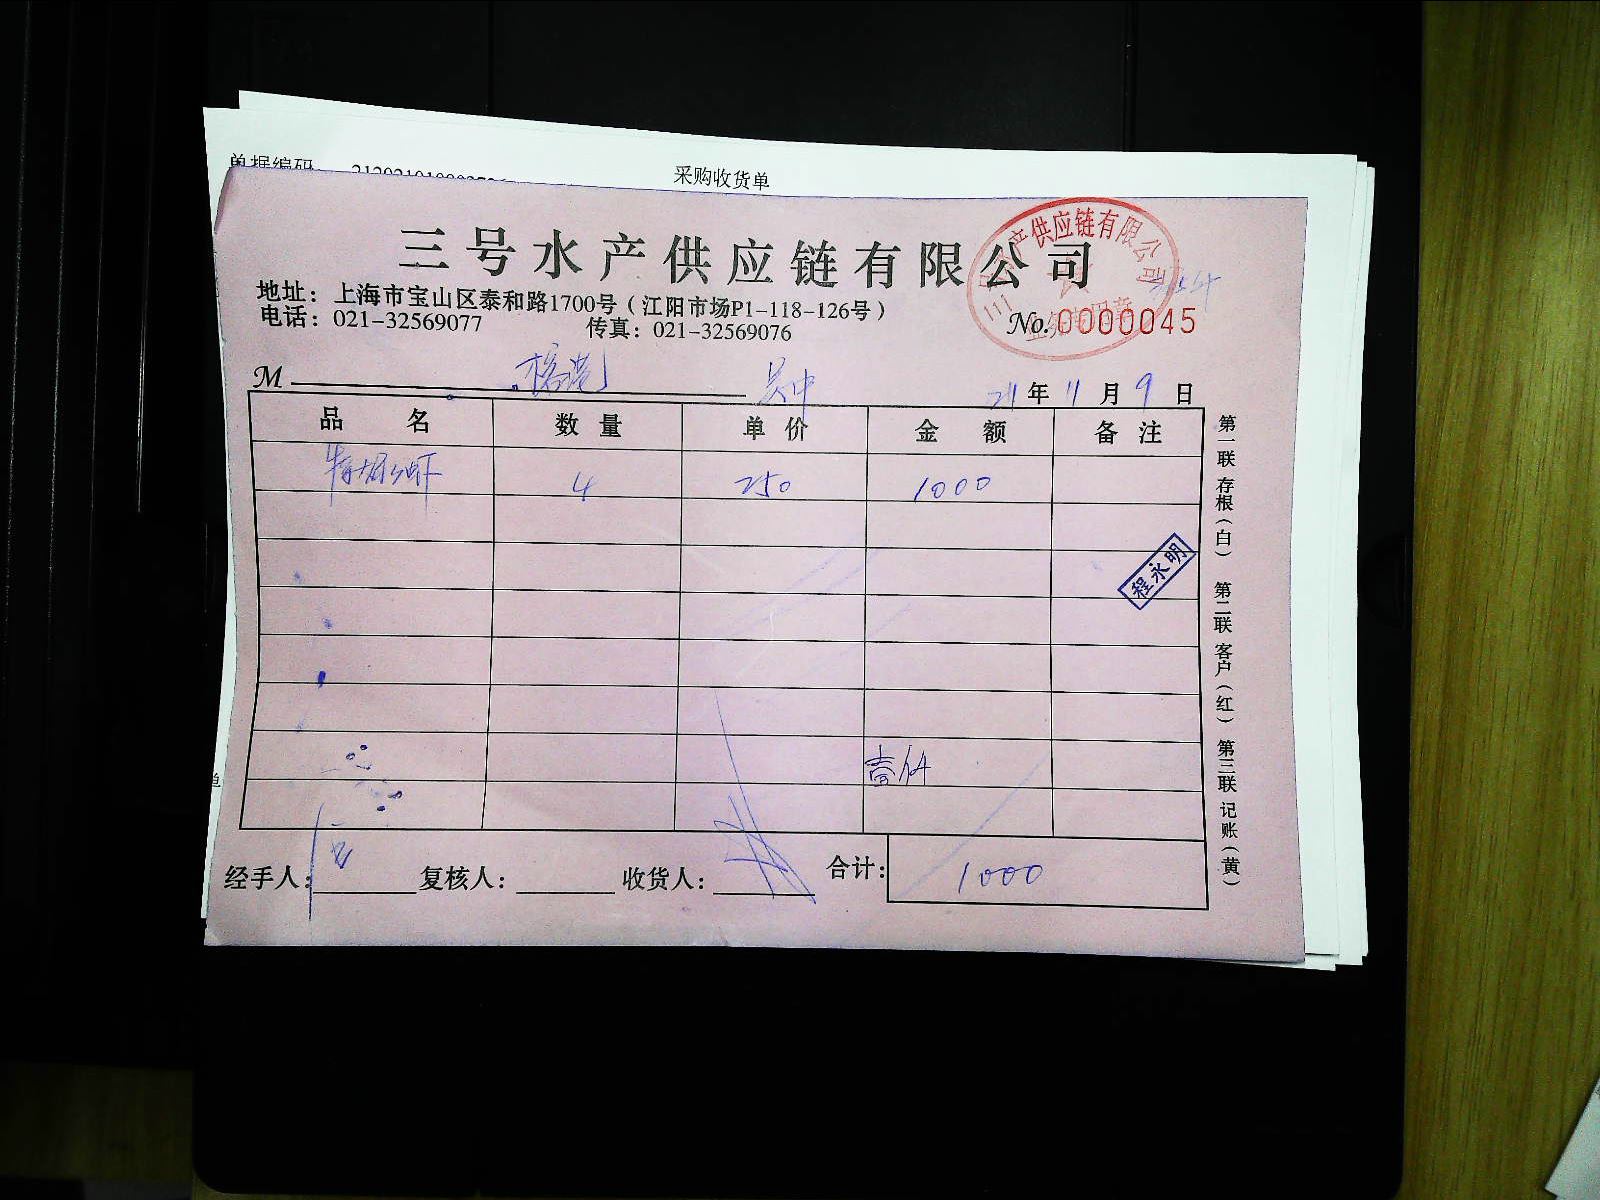 采购收货单
三号水产供应链有限公司
地址：上海市宝山区泰和路1700号（江阳市场P1-118-126号）
电话：021-32569077 传真：021-32569076
No.0000045
产供应链有限公司
M 吴中 21年11月9日
品名 数量 单价 金额 备注
4 250 1000
程永明
壹仟
经手人： 复核人： 收货人： 合计： 1000
第一联 存根（白） 第二联 客户（红） 第三联 记账（黄）